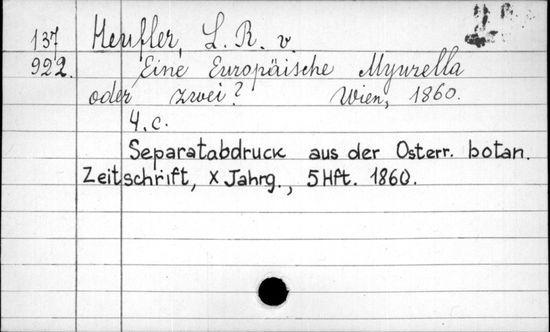 137 Heufler, L. R. v.
922. Eine Europäische Myurella
oder zwei? Wien, 1860.
4. c.
Separatabdruck aus der Österr. botan.
Zeitschrift, X Jahrg., 5 Hft. 1860.